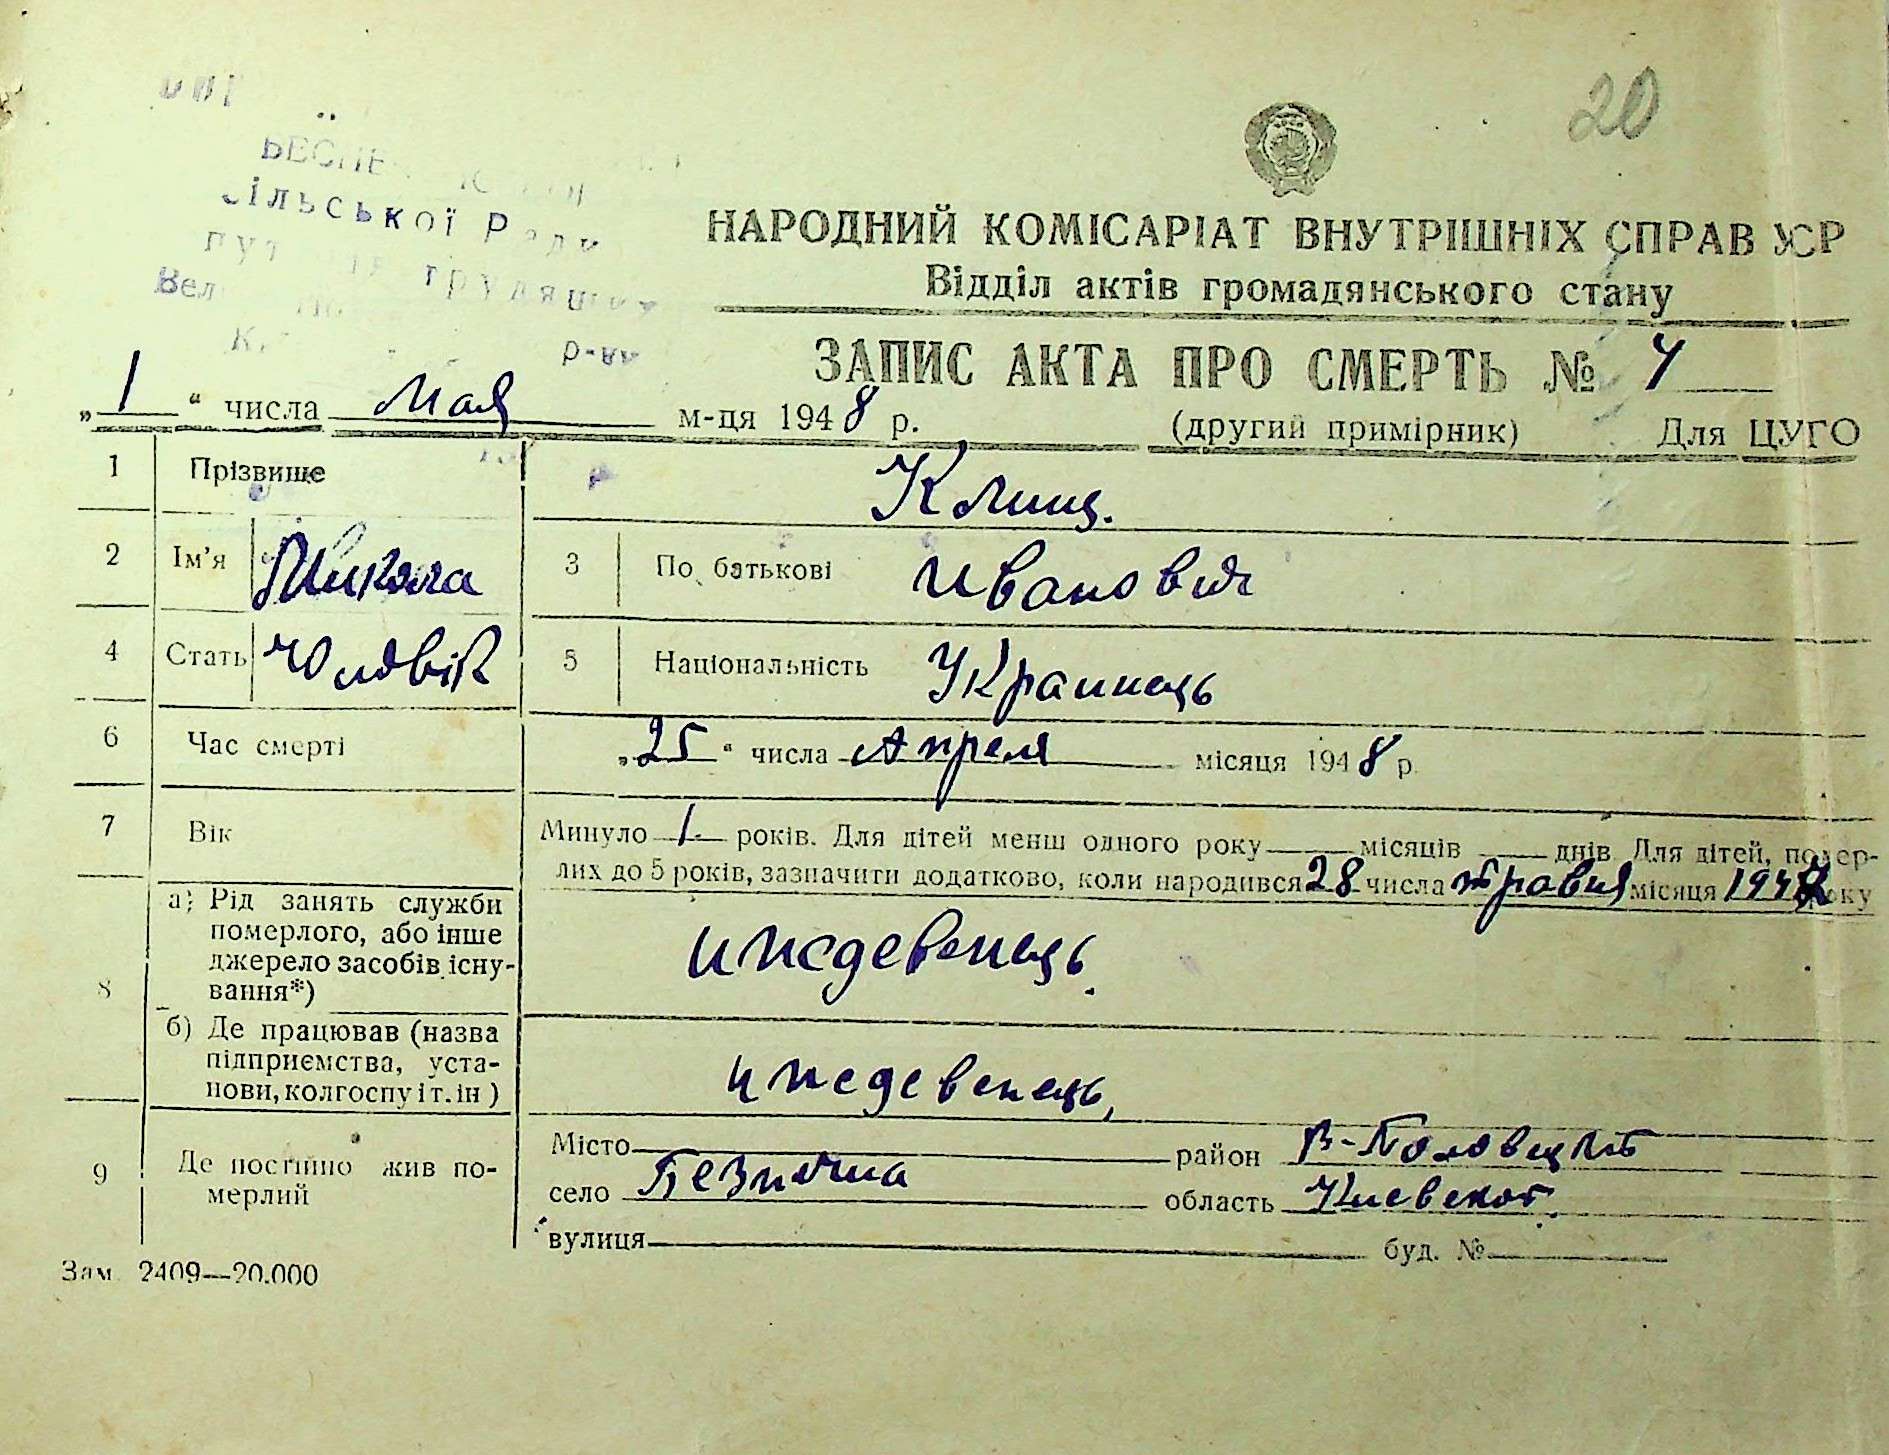 20
сільської Ради
трудящих
Вел
р-ну
НАРОДНИЙ КОМІСАРІАТ ВНУТРІШНІХ СПРАВ УСР
Відділ актів громадянського стану
ЗАПИС АКТА ПРО СМЕРТЬ № 4
„1“ числа Мая м-ця 1948 р. (другий примірник) Для ЦУГО
1 Прізвище Клищ.
2 Ім'я Микола 3 По батькові Иванович
4 Стать Чоловік 5 Національність Украинець
6 Час смерті „25“ числа Апреля місяця 1948 р.
7 Вік Минуло 1 років. Для дітей менш одного року місяців днів Для дітей, помер-
лих до 5 років, зазначити додатково, коли народився 28 числа травня місяця 1947 року
8 а) Рід занять служби
померлого, або інше
джерело засобів існу-
вання*) иждевенець.
б) Де працював (назва
підприємства, уста-
нови, колгоспу і т. ін) иждевенець,
9 Де постійно жив по-
мерлий
Місто район В-Половецкий
село Безпична область Киевской.
вулиця буд. №
Зам. 2409—20.000